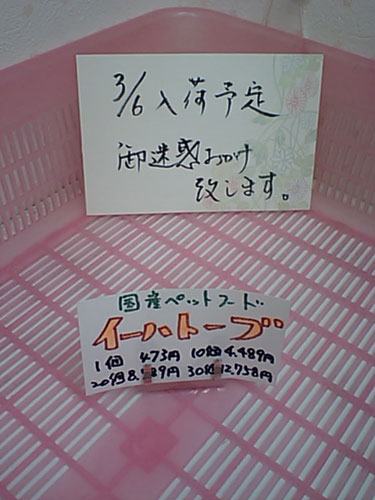 3/6 入荷予定
御迷惑おかけ
致します。
国産ペットフード
イーハトーブ
1個 473円 10個 4,489円
20個 8,989円 30個 12,758円